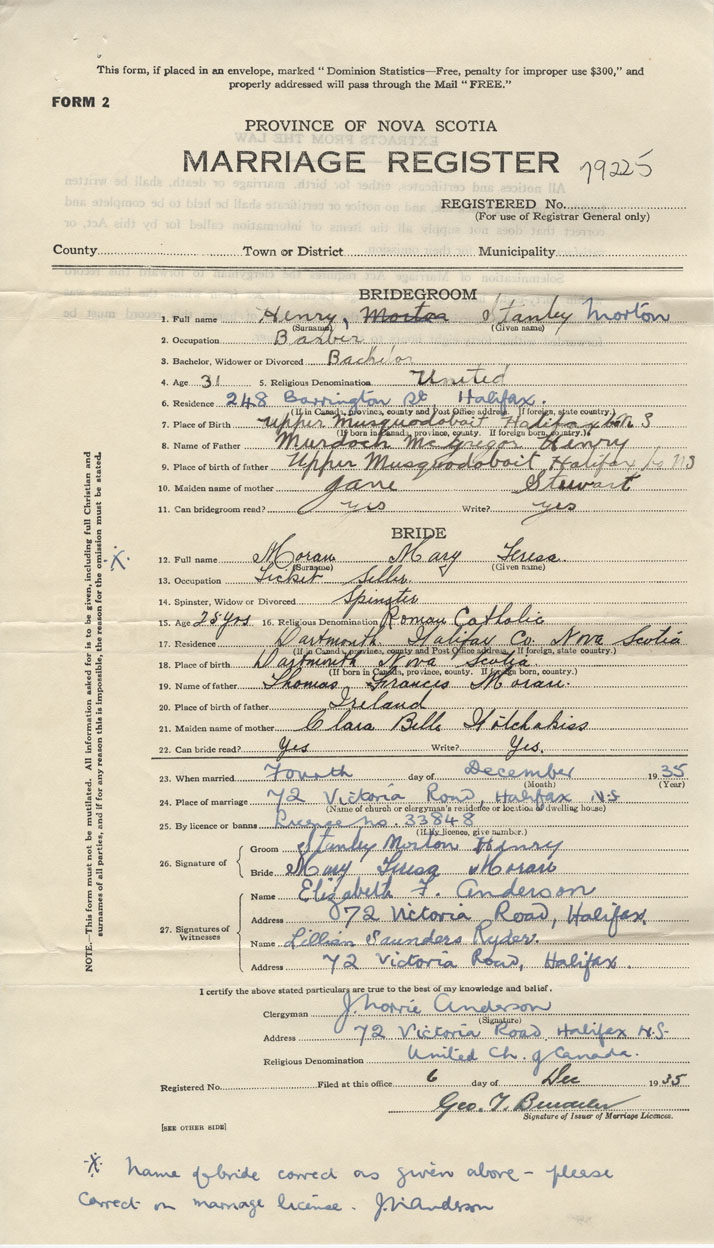 This form, if placed in an envelope, marked “ Dominion Statistics—Free, penalty for improper use $300,” and
properly addressed will pass through the Mail “ FREE.”
FORM 2
PROVINCE OF NOVA SCOTIA
MARRIAGE REGISTER 79225
REGISTERED No.
(For use of Registrar General only)
County Town or District Municipality
BRIDEGROOM
1. Full name Henry, Morton Stanley Morton
(Surname) (Given name)
2. Occupation Barber
3. Bachelor, Widower or Divorced Bachelor
4. Age 31 5. Religious Denomination United
6. Residence 248 Barrington St Halifax.
(If in Canada, province, county and Post Office address. If foreign, state country.)
7. Place of Birth Upper Musquodoboit Halifax Co N S
(If born in Canada, province, county. If foreign born, country.)
8. Name of Father Murdoch McGregor Henry
9. Place of birth of father Upper Musquodoboit Halifax Co NS
10. Maiden name of mother Jane Stewart
11. Can bridegroom read? yes Write? yes
BRIDE
12. Full name Moran Mary Teresa
(Surname) (Given name)
13. Occupation Ticket Seller
14. Spinster, Widow or Divorced Spinster
15. Age 25 yrs 16. Religious Denomination Roman Catholic
17. Residence Dartmouth Halifax Co. Nova Scotia
(If in Canada, province, county and Post Office address. If foreign, state country.)
18. Place of birth Dartmouth Nova Scotia
(If born in Canada, province, county. If foreign born, country.)
19. Name of father Thomas Francis Moran.
20. Place of birth of father Ireland
21. Maiden name of mother Clara Bell Hotchkiss
22. Can bride read? Yes Write? Yes.
23. When married Fourth day of December 1935
(Month) (Year)
24. Place of marriage 72 Victoria Road, Halifax N.S
(Name of church or clergyman's residence or location of dwelling house)
25. By licence or banns License no. 33848
(If by licence, give number.)
26. Signature of
Groom Stanley Morton Henry
Bride Mary Teresa Moran
27. Signatures of Witnesses
Name Elizabeth F. Anderson
Address 72 Victoria Road, Halifax.
Name Lillian Saunders Ryder.
Address 72 Victoria Road, Halifax.
I certify the above stated particulars are true to the best of my knowledge and belief.
Clergyman Anderson
(Signature)
Address 72 Victoria Road Halifax N.S.
Religious Denomination United Ch. of Canada.
Registered No. Filed at this office 6 day of Dec 1935
Geo. T.
Signature of Issuer of Marriage Licences.
[SEE OTHER SIDE]
NOTE.—This form must not be mutilated. All information asked for is to be given, including full Christian and
surnames of all parties, and if for any reason this is impossible, the reason for the omission must be stated.
※ Name of bride correct as given above – please
correct on marriage license. Anderson